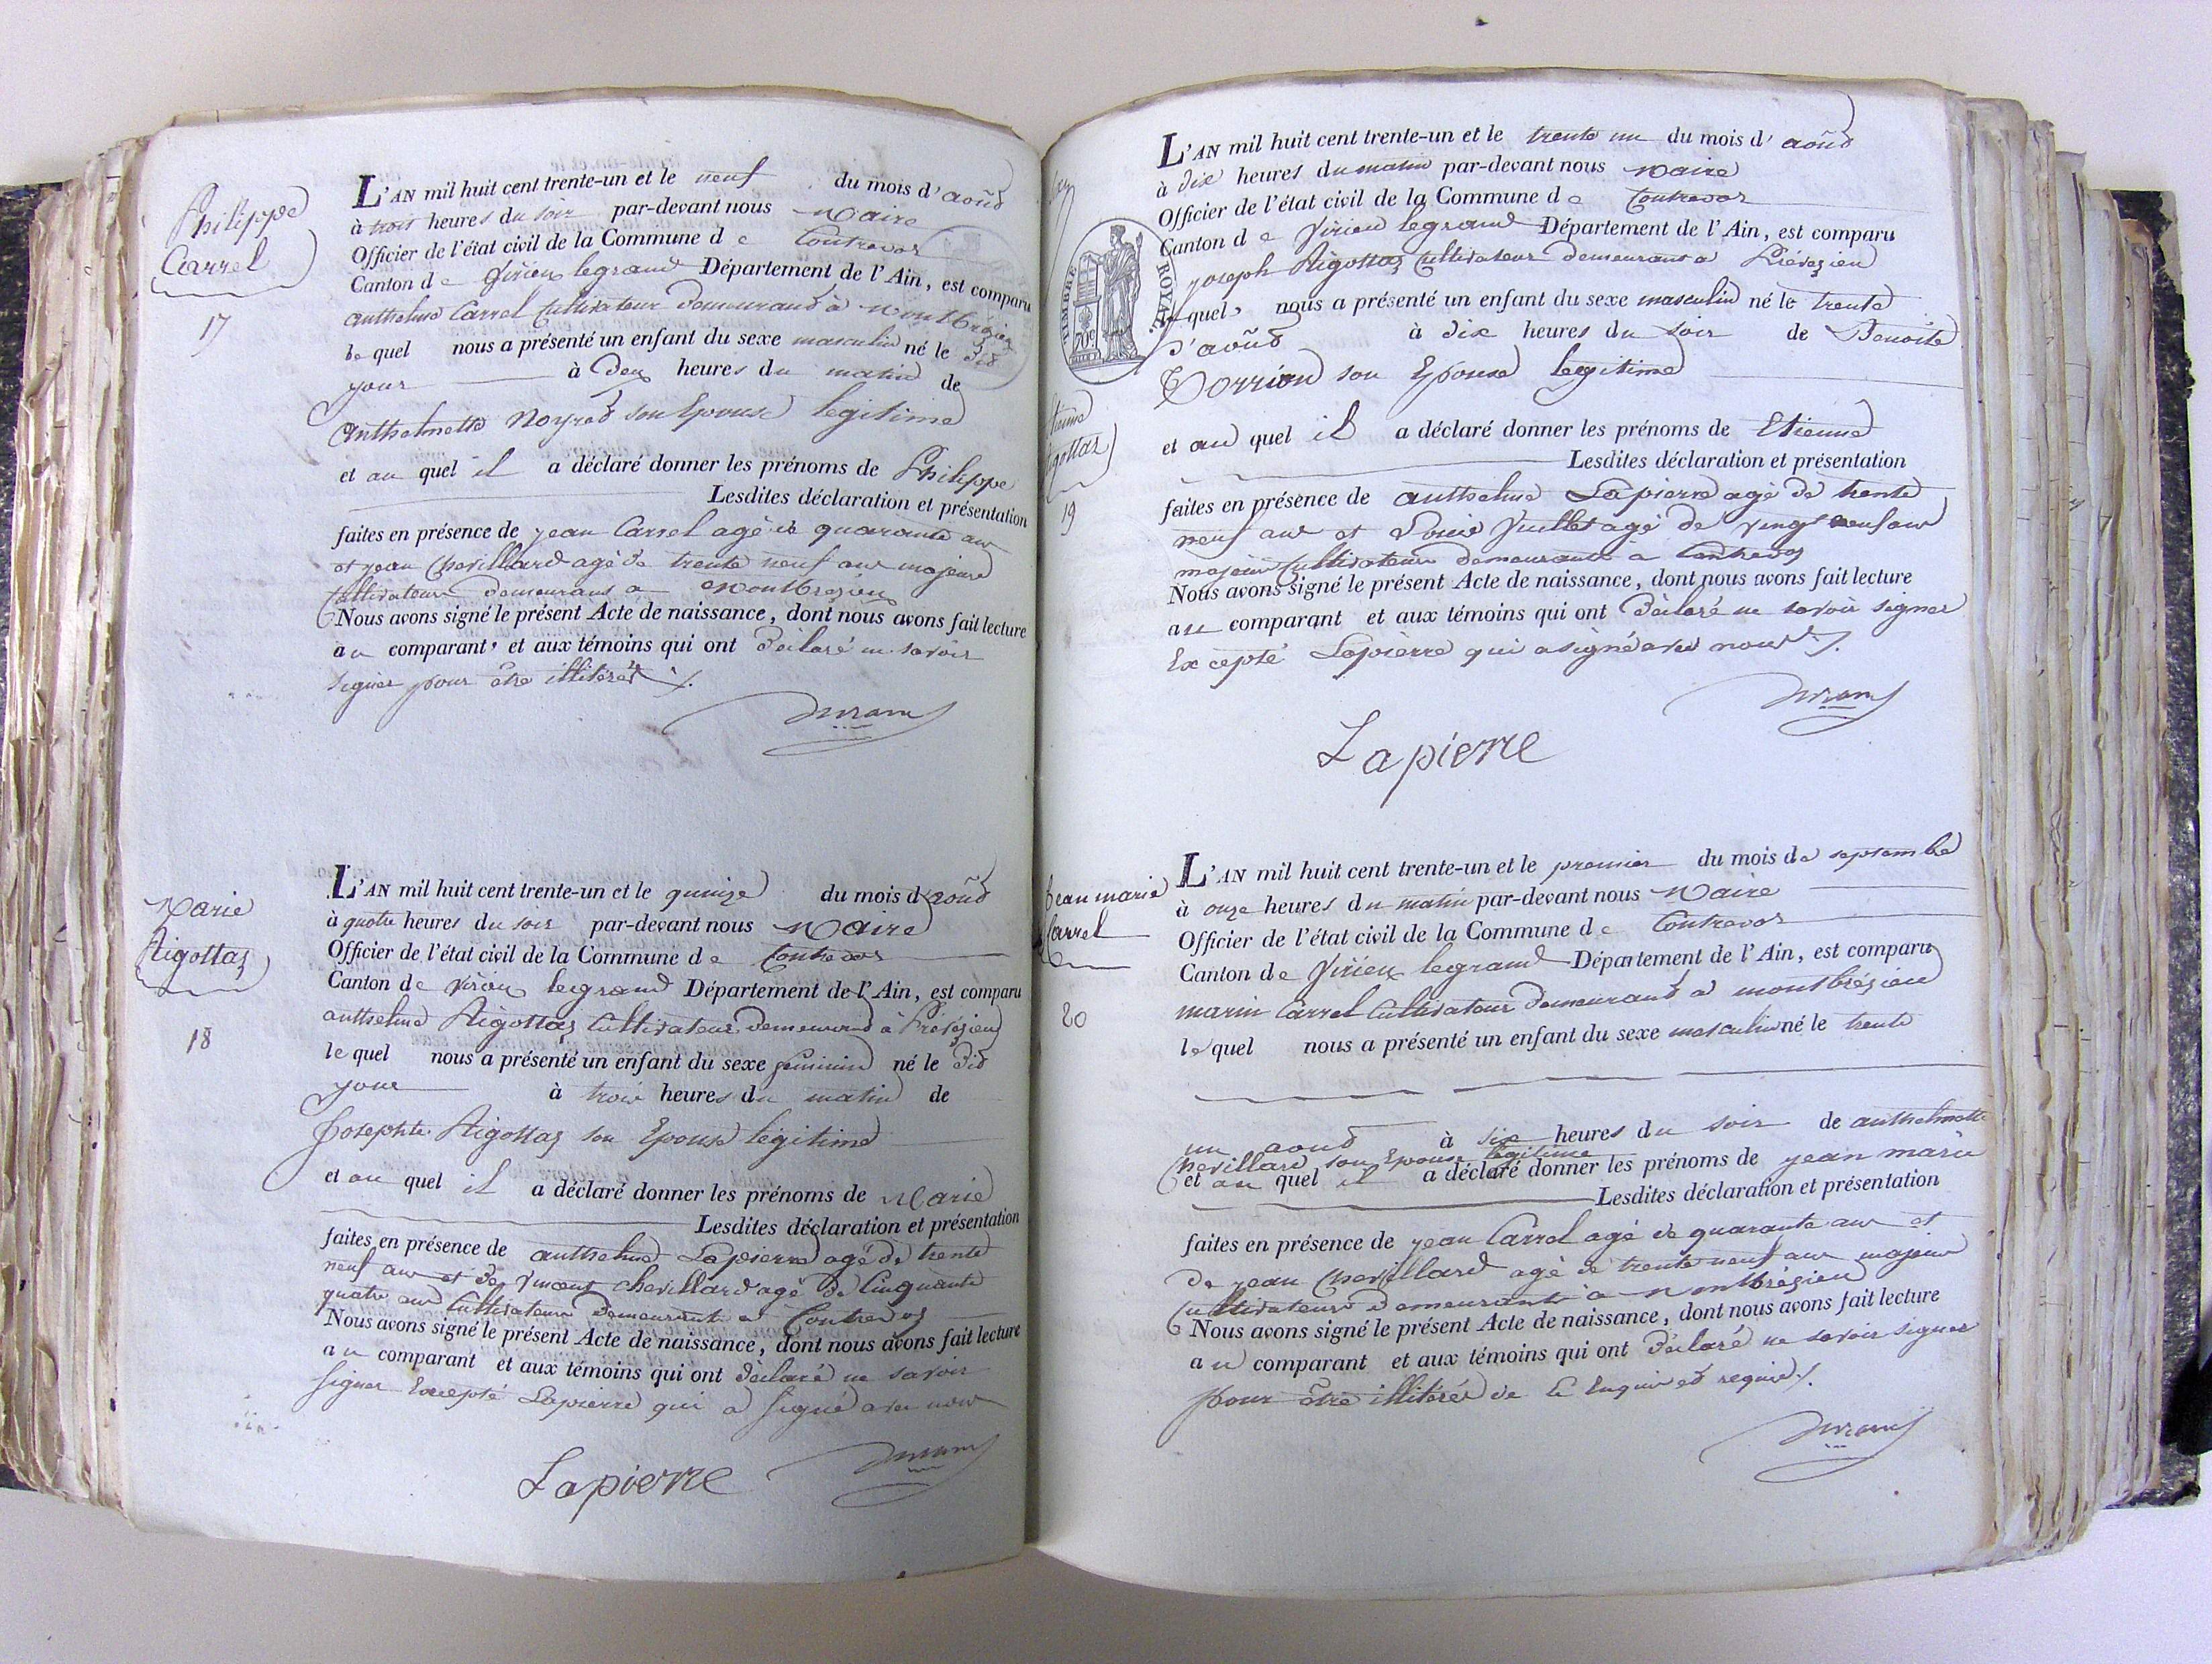 Philippe
Carrel
17
L'AN mil huit cent trente-un et le neuf du mois d'août
à trois heures du soir par-devant nous Maire
Officier de l'état civil de la Commune de Contrevoz
Canton de Virieu legrand Département de l'Ain, est comparu
anthelme Carrel Cultivateur demeurant à Montbrézieu
le quel nous a présenté un enfant du sexe masculin né le dit
jour à deux heures du matin de
Anthelmette Noyret son Epouse legitime
et au quel il a déclaré donner les prénoms de Philippe
Lesdites déclaration et présentation
faites en présence de jean Carrel agé de quarante ans
et jean Chevillard agé de trente neuf ans majeurs
Cultivateurs demeurans a Montbrézieu
Nous avons signé le présent Acte de naissance, dont nous avons fait lecture
au comparant, et aux témoins qui ont déclaré ne savoir
signer pour être illitérés ./.
Marie
Rigottaz
18
L'AN mil huit cent trente-un et le quinze du mois d'août
à quatre heures du soir par-devant nous Maire
Officier de l'état civil de la Commune de Contrevoz
Canton de Virieu legrand Département de l'Ain, est comparu
anthelme Rigottaz Cultivateur demeurant à Prévézieu
le quel nous a présenté un enfant du sexe feminin né le dit
jour à trois heures du matin de
Josephte Rigottaz son Epouse légitime
et au quel il a déclaré donner les prénoms de Marie
Lesdites déclaration et présentation
faites en présence de anthelme Lapierre agé de trente
neuf ans et de Vincent Chevillard agé de Cinquante
quatre ans Cultivateurs demeurant a Contrevoz
Nous avons signé le présent Acte de naissance, dont nous avons fait lecture
au comparant et aux témoins qui ont déclaré ne savoir
signer Excepté Lapierre qui a signé avec nous
Lapierre
TIMBRE ROYAL
70c
L'AN mil huit cent trente-un et le trente un du mois d'août
à dix heures du matin par-devant nous Maire
Officier de l'état civil de la Commune de Contrevoz
Canton de Virieu legrand Département de l'Ain, est comparu
joseph Rigottaz Cultivateur demeurant a Prévézieu
quel nous a présenté un enfant du sexe masculin né le trente
d'août à dix heures du soir de Benoite
son Epouse legitime
19
et au quel il a déclaré donner les prénoms de Etienne
Lesdites déclaration et présentation
faites en présence de anthelme Lapierre agé de trente
neuf ans et Louis Juillet agé de vingt neuf ans
majeurs Cultivateurs demeurants a Contrevoz
Nous avons signé le présent Acte de naissance, dont nous avons fait lecture
au comparant et aux témoins qui ont déclaré ne savoir signer
Excepté Lapierre qui a signé avec nous ./.
Lapierre
Jean marie
Carrel
20
L'AN mil huit cent trente-un et le premier du mois de septembre
à onze heures du matin par-devant nous Maire
Officier de l'état civil de la Commune de Contrevoz
Canton de Virieu legrand Département de l'Ain, est comparu
marin Carrel Cultivateur demeurant à montbrézieu
le quel nous a présenté un enfant du sexe masculin né le trente
un aout à six heures du soir de anthelmette
Chevillard son Epouse légitime
et au quel il a déclaré donner les prénoms de jean marie
Lesdites déclaration et présentation
faites en présence de jean Carrel agé de quarante ans et
de jean Chevillard agé de trente neuf ans majeurs
Cultivateurs demeurants à Montbrézieu
Nous avons signé le présent Acte de naissance, dont nous avons fait lecture
au comparant et aux témoins qui ont déclaré ne savoir signer
pour être illitérés de ce Enquis et requis ./.